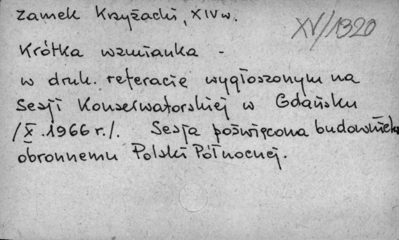 Zamek Krzyżacki, XIV w.
XV/1320
Krótka wzmianka -
w druk. referacie wygłoszonym na
Sesji Konserwatorskiej w Gdańsku
/X.1966 r./. Sesja poświęcona budownictw.
obronnemu Polski Północnej.